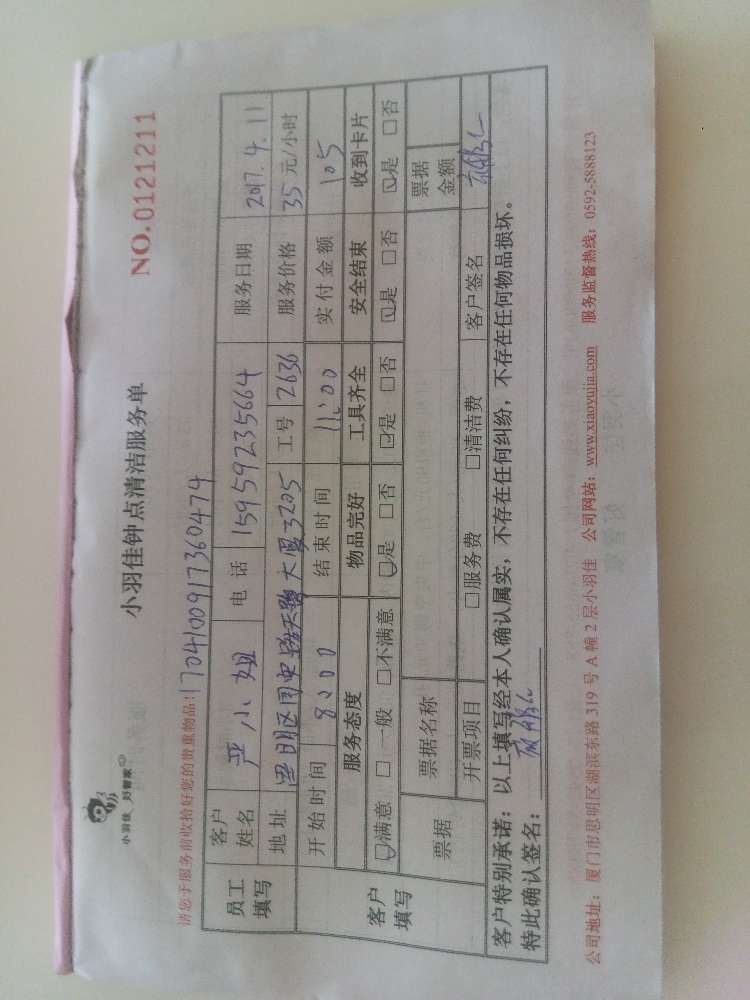 小羽佳 好管家
小羽佳钟点清洁服务单
NO.0121211
请您于服务前收拾好您的贵重物品! 1704100917360474
员工填写 客户姓名 严小姐 电话 15959235664 服务日期 2017.4.11
地址 思明区 大厦3205 工号 2636 服务价格 35元/小时
开始时间 8:00 结束时间 11:00 实付金额 105
客户填写 服务态度 物品完好 工具齐全 安全结束 收到卡片
☑满意 □一般 □不满意 ☑是 □否 ☑是 □否 ☑是 □否 ☑是 □否
票据 票据名称 票据金额
开票项目 □服务费 □清洁费 客户签名
客户特别承诺:以上填写经本人确认属实,不存在任何纠纷,不存在任何物品损坏。
特此确认签名:
公司地址:厦门市思明区湖滨东路319号A幢2层小羽佳 公司网站:www.xiaoyujia.com 服务监督热线:0592-5888123